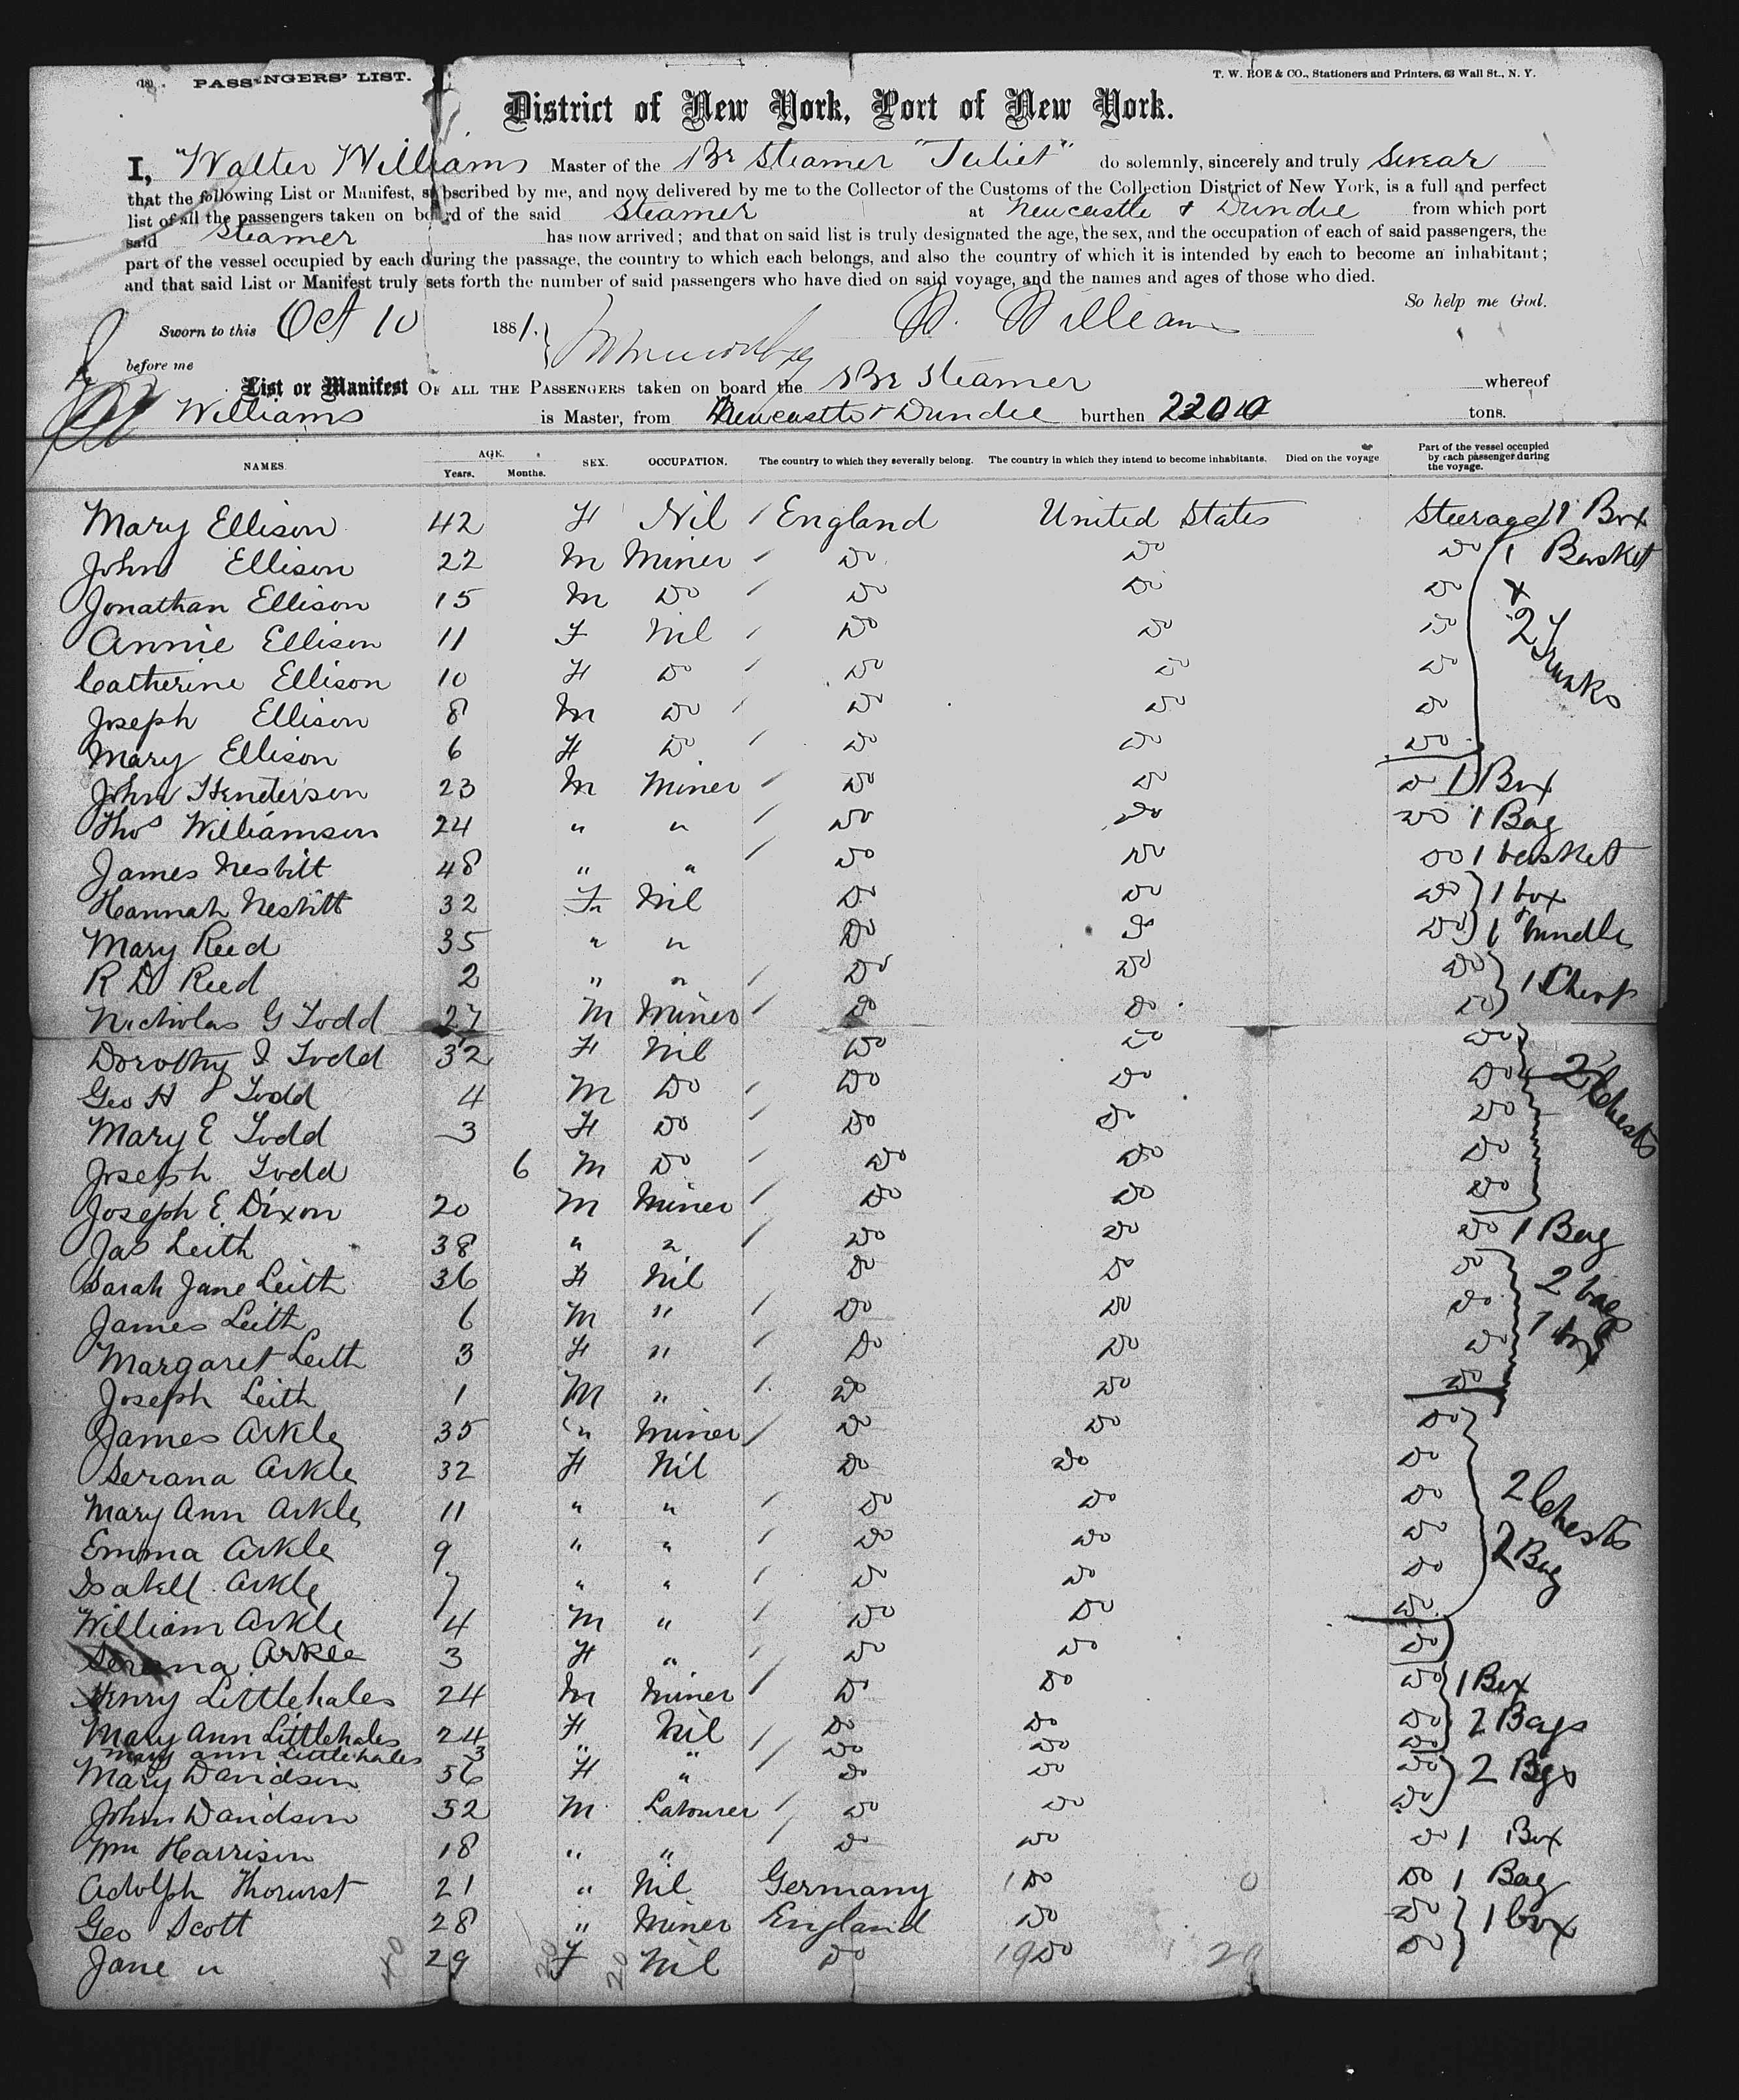 (18) PASSENGERS' LIST. T. W. ROE & CO., Stationers and Printers, 63 Wall St., N. Y.
District of New York, Port of New York.
I, Walter Williams Master of the Br Steamer "Juliet" do solemnly, sincerely and truly Swear
that the following List or Manifest, subscribed by me, and now delivered by me to the Collector of the Customs of the Collection District of New York, is a full and perfect
list of all the passengers taken on board of the said Steamer at Newcastle & Dundee from which port
said Steamer has now arrived; and that on said list is truly designated the age, the sex, and the occupation of each of said passengers, the
part of the vessel occupied by each during the passage, the country to which each belongs, and also the country of which it is intended by each to become an inhabitant;
and that said List or Manifest truly sets forth the number of said passengers who have died on said voyage, and the names and ages of those who died.
So help me God.
Sworn to this Oct 10 1881. W. Williams
before me
List or Manifest OF ALL THE PASSENGERS taken on board the Br Steamer whereof
Williams is Master, from Newcastle & Dundee burthen 2200 tons.
NAMES. AGE. Years. Months. SEX. OCCUPATION. The country to which they severally belong. The country in which they intend to become inhabitants. Died on the voyage Part of the vessel occupied by each passenger during the voyage.
Mary Ellison 42 F Nil / England United States Steerage 1 Box
John Ellison 22 M Miner / Do Do Do 1 Basket
Jonathan Ellison 15 M Do / Do Do Do &
Annie Ellison 11 F Nil / Do Do Do 2 Trunks
Catherine Ellison 10 F Do / Do Do Do
Joseph Ellison 8 M Do / Do Do Do
Mary Ellison 6 F Do / Do Do Do
John Henderson 23 M Miner / Do Do Do 1 Box
Thos Williamson 24 " " / Do Do Do 1 Bag
James Nesbitt 48 " " / Do Do Do 1 basket
Hannah Nesbitt 32 F Nil Do Do Do 1 box
Mary Reed 35 " " Do Do Do 1 bundle
R D Reed 2 " " / Do Do Do 1 Chest
Nicholas G Todd 27 M Miner / Do Do Do
Dorothy I Todd 32 F Nil Do Do Do
Geo H Todd 4 M Do / Do Do Do 2 Chests
Mary E Todd 3 F Do / Do Do Do
Joseph Todd 6 M Do / Do Do Do
Joseph E. Dixon 20 M Miner / Do Do Do
Jas Leith 38 " " / Do Do Do 1 Bag
Sarah Jane Leith 36 F Nil Do Do Do 2 bags
James Leith 6 M " / Do Do Do
Margaret Leith 3 F " / Do Do Do
Joseph Leith 1 M " / Do Do Do
James Arkle 35 " Miner / Do Do Do
Serana Arkle 32 F Nil Do Do Do
Mary Ann Arkle 11 " " / Do Do Do 2 Chests
Emma Arkle 9 " " / Do Do Do 2 Bag
Isabell Arkle 7 " " / Do Do Do
William Arkle 4 M " / Do Do Do
Serana Arkle 3 F " / Do Do Do
Henry Littlehales 24 M Miner / Do Do Do 1 Box
Mary Ann Littlehales 24 F Nil / Do Do Do 2 Bags
Mary Ann Littlehales 3 " " / Do Do Do
Mary Davidson 56 F " Do Do Do 2 Bgs
John Davidson 52 M Labourer / Do Do Do
Wm Harrison 18 " " / Do Do Do 1 Box
Adolph 21 " Nil Germany 1 Do 0 Do 1 Bag
Geo Scott 28 " Miner England Do Do 1 box
Jane " 40 29 20 F 20 Nil Do 19 Do Do